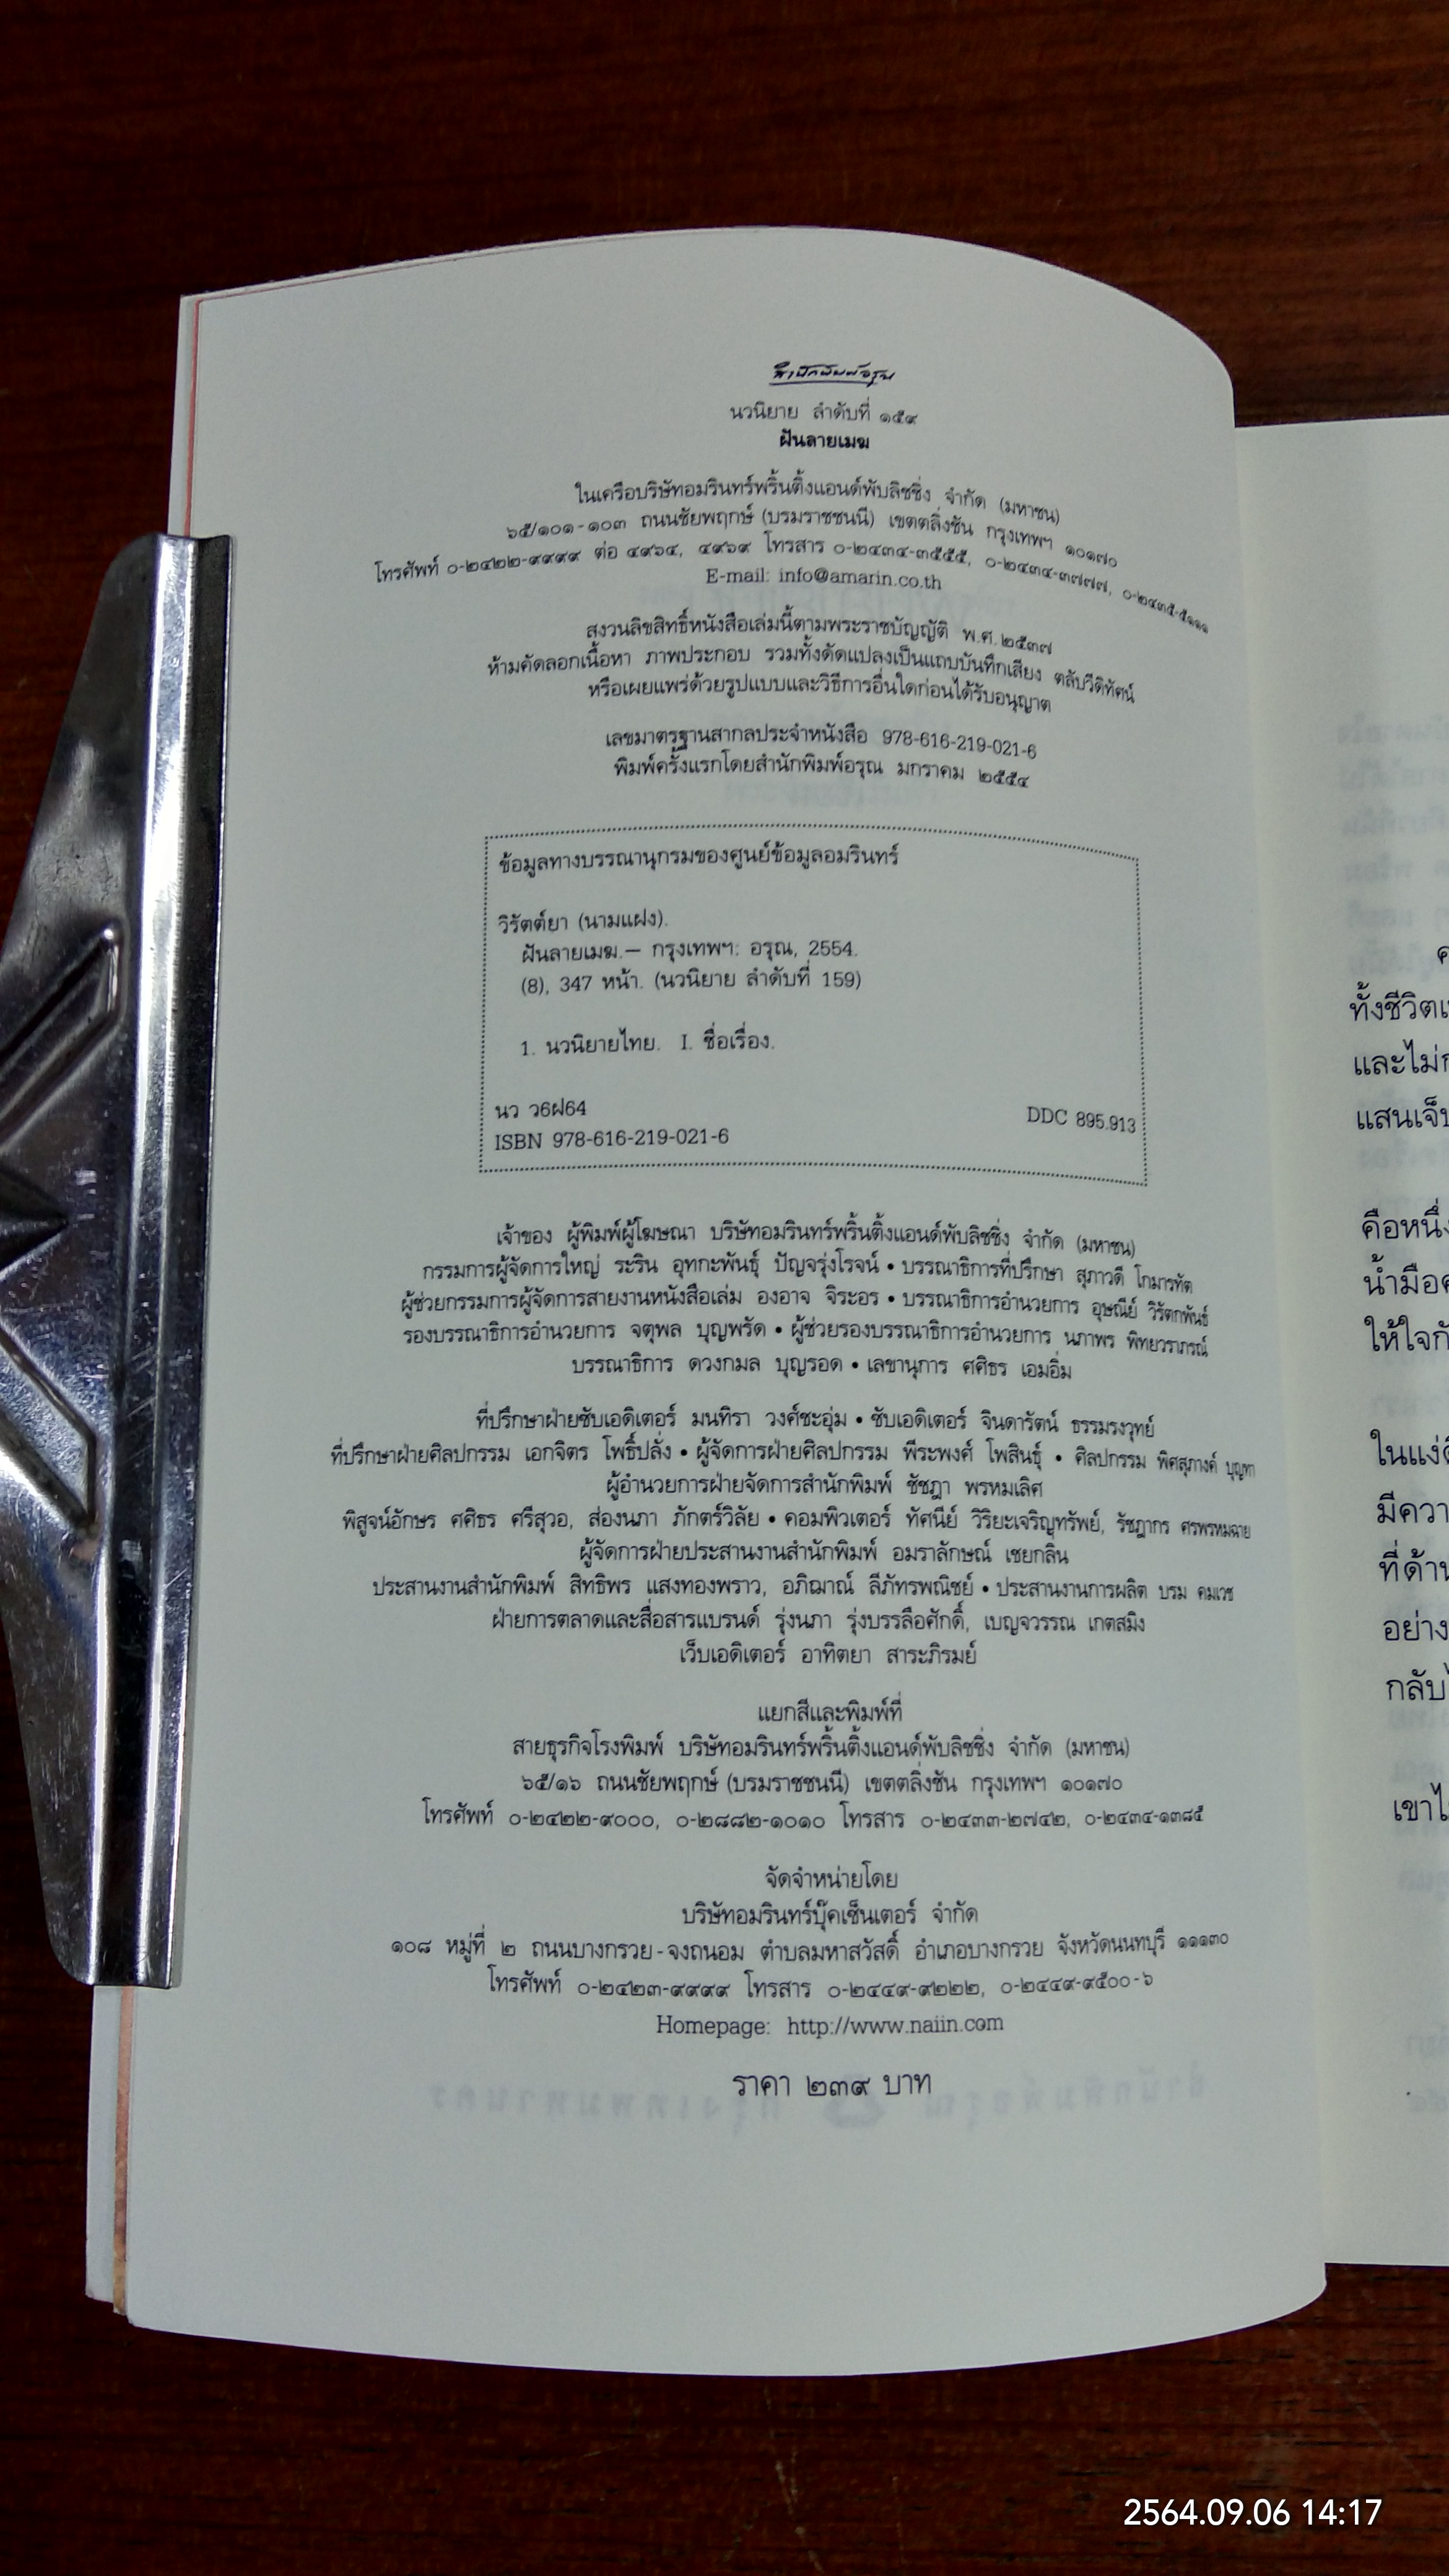 สำนักพิมพ์อรุณ
นวนิยาย ลำดับที่ ๑๕๙
ฝันลายเมฆ
ในเครือบริษัทอมรินทร์พริ้นติ้งแอนด์พับลิชชิ่ง จำกัด (มหาชน)
๖๕/๑๐๑-๑๐๓ ถนนชัยพฤกษ์ (บรมราชชนนี) เขตตลิ่งชัน กรุงเทพฯ ๑๐๑๗๐
โทรศัพท์ ๐-๒๔๒๒-๙๙๙๙ ต่อ ๔๙๖๔, ๔๙๖๙ โทรสาร ๐-๒๔๓๔-๓๕๕๕, ๐-๒๔๓๔-๓๗๗๗, ๐-๒๔๓๕-๕๑๑๑
E-mail: info@amarin.co.th
สงวนลิขสิทธิ์หนังสือเล่มนี้ตามพระราชบัญญัติ พ.ศ.๒๕๓๗
ห้ามคัดลอกเนื้อหา ภาพประกอบ รวมทั้งดัดแปลงเป็นแถบบันทึกเสียง ตลับวีดิทัศน์
หรือเผยแพร่ด้วยรูปแบบและวิธีการอื่นใดก่อนได้รับอนุญาต
เลขมาตรฐานสากลประจำหนังสือ 978-616-219-021-6
พิมพ์ครั้งแรกโดยสำนักพิมพ์อรุณ มกราคม ๒๕๕๔
ข้อมูลทางบรรณานุกรมของศูนย์ข้อมูลอมรินทร์
วิรัตต์ยา (นามแฝง).
ฝันลายเมฆ.— กรุงเทพฯ: อรุณ, 2554.
(8), 347 หน้า. (นวนิยาย ลำดับที่ 159)
1. นวนิยายไทย. I. ชื่อเรื่อง.
นว ว6ฝ64
DDC 895.913
ISBN 978-616-219-021-6
เจ้าของ ผู้พิมพ์ผู้โฆษณา บริษัทอมรินทร์พริ้นติ้งแอนด์พับลิชชิ่ง จำกัด (มหาชน)
กรรมการผู้จัดการใหญ่ ระริน อุทกะพันธุ์ ปัญจรุ่งโรจน์ • บรรณาธิการที่ปรึกษา สุภาวดี โกมารทัต
ผู้ช่วยกรรมการผู้จัดการสายงานหนังสือเล่ม องอาจ จิระอร • บรรณาธิการอำนวยการ อุษณีย์ วิรัตกพันธ์
รองบรรณาธิการอำนวยการ จตุพล บุญพรัด • ผู้ช่วยรองบรรณาธิการอำนวยการ นภาพร พิทยวราภรณ์
บรรณาธิการ ดวงกมล บุญรอด • เลขานุการ ศศิธร เอมอิ่ม
ที่ปรึกษาฝ่ายซับเอดิเตอร์ มนทิรา วงศ์ชะอุ่ม • ซับเอดิเตอร์ จินดารัตน์ ธรรมรงวุทย์
ที่ปรึกษาฝ่ายศิลปกรรม เอกจิตร โพธิ์ปลั่ง • ผู้จัดการฝ่ายศิลปกรรม พีระพงศ์ โพสินธุ์ • ศิลปกรรม พิศสุภางค์ บุญทา
ผู้อำนวยการฝ่ายจัดการสำนักพิมพ์ ชัชฎา พรหมเลิศ
พิสูจน์อักษร ศศิธร ศรีสุวอ, ส่องนภา ภักตร์วิลัย • คอมพิวเตอร์ ทัศนีย์ วิริยะเจริญทรัพย์, รัชฎากร ศรพรหมฉาย
ผู้จัดการฝ่ายประสานงานสำนักพิมพ์ อมราลักษณ์ เชยกลิ่น
ประสานงานสำนักพิมพ์ สิทธิพร แสงทองพราว, อภิฌาณ์ ลีภัทรพณิชย์ • ประสานงานการผลิต บรม คมเวช
ฝ่ายการตลาดและสื่อสารแบรนด์ รุ่งนภา รุ่งบรรลือศักดิ์, เบญจวรรณ เกตสมิง
เว็บเอดิเตอร์ อาทิตยา สาระภิรมย์
แยกสีและพิมพ์ที่
สายธุรกิจโรงพิมพ์ บริษัทอมรินทร์พริ้นติ้งแอนด์พับลิชชิ่ง จำกัด (มหาชน)
๖๕/๑๖ ถนนชัยพฤกษ์ (บรมราชชนนี) เขตตลิ่งชัน กรุงเทพฯ ๑๐๑๗๐
โทรศัพท์ ๐-๒๔๒๒-๙๐๐๐, ๐-๒๘๘๒-๑๐๑๐ โทรสาร ๐-๒๔๓๓-๒๗๔๒, ๐-๒๔๓๔-๑๓๘๕
จัดจำหน่ายโดย
บริษัทอมรินทร์บุ๊คเซ็นเตอร์ จำกัด
๑๐๘ หมู่ที่ ๒ ถนนบางกรวย-จงถนอม ตำบลมหาสวัสดิ์ อำเภอบางกรวย จังหวัดนนทบุรี ๑๑๑๓๐
โทรศัพท์ ๐-๒๔๒๓-๙๙๙๙ โทรสาร ๐-๒๔๔๙-๙๒๒๒, ๐-๒๔๔๙-๙๕๐๐-๖
Homepage: http://www.naiin.com
ราคา ๒๓๙ บาท
ทั้งชีวิต
และไม่
แสนเจ็บ
คือหนึ่ง
น้ำมือ
ให้ใจ
ในแง่
มีความ
ที่ด้าน
อย่าง
กลับ
เขา
2564.09.06 14:17